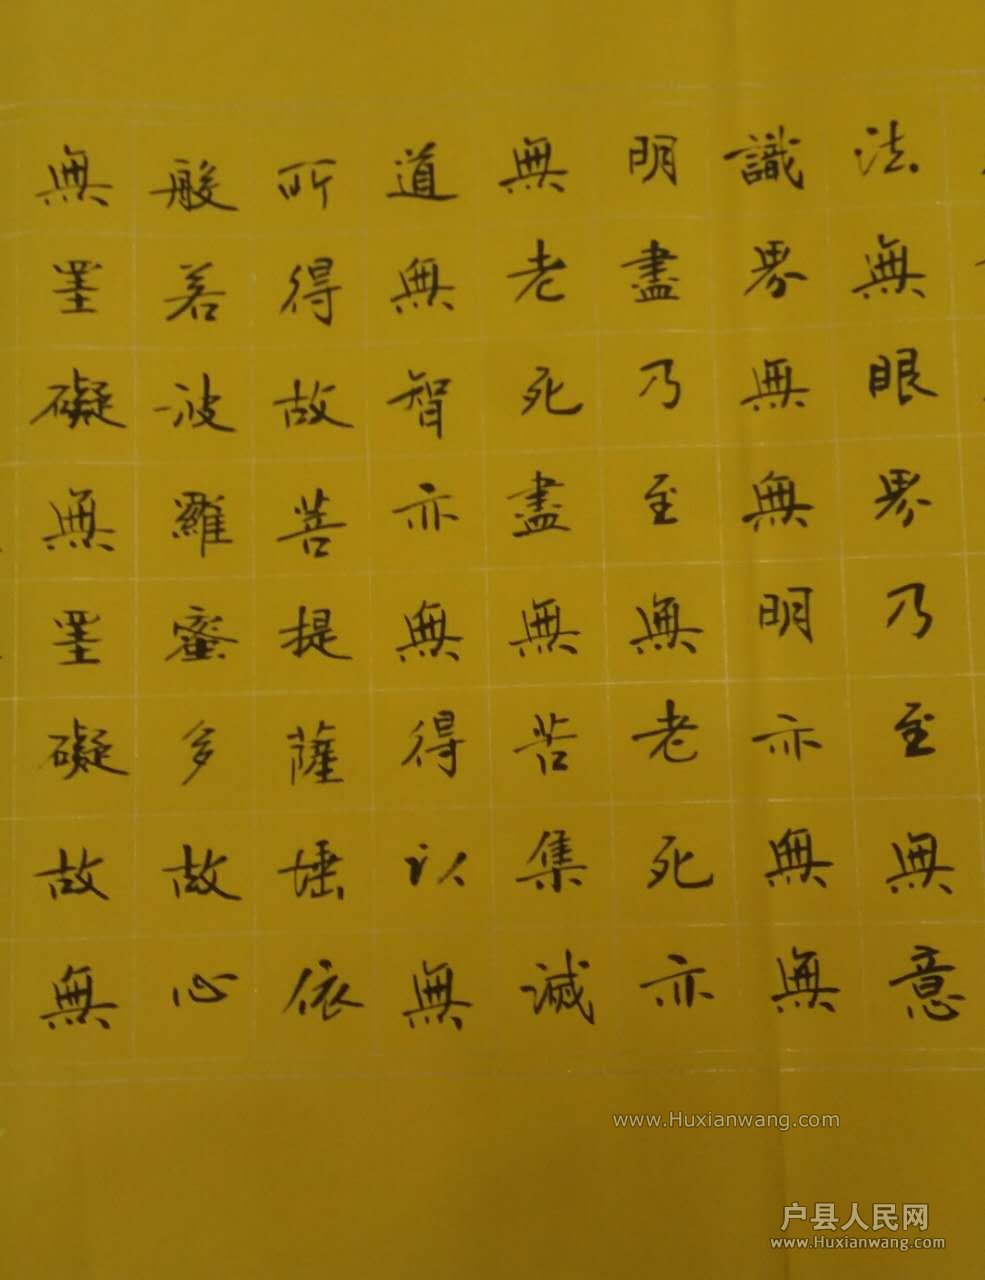 法無眼界乃至無意
識界無無明亦無無
明盡乃至無老死亦
無老死盡無苦集滅
道無智亦無得以無
所得故菩提薩埵依
般若波羅蜜多故心
無罣礙無罣礙故無
www.Huxianwang.com
户县人民网
www.Huxianwang.com